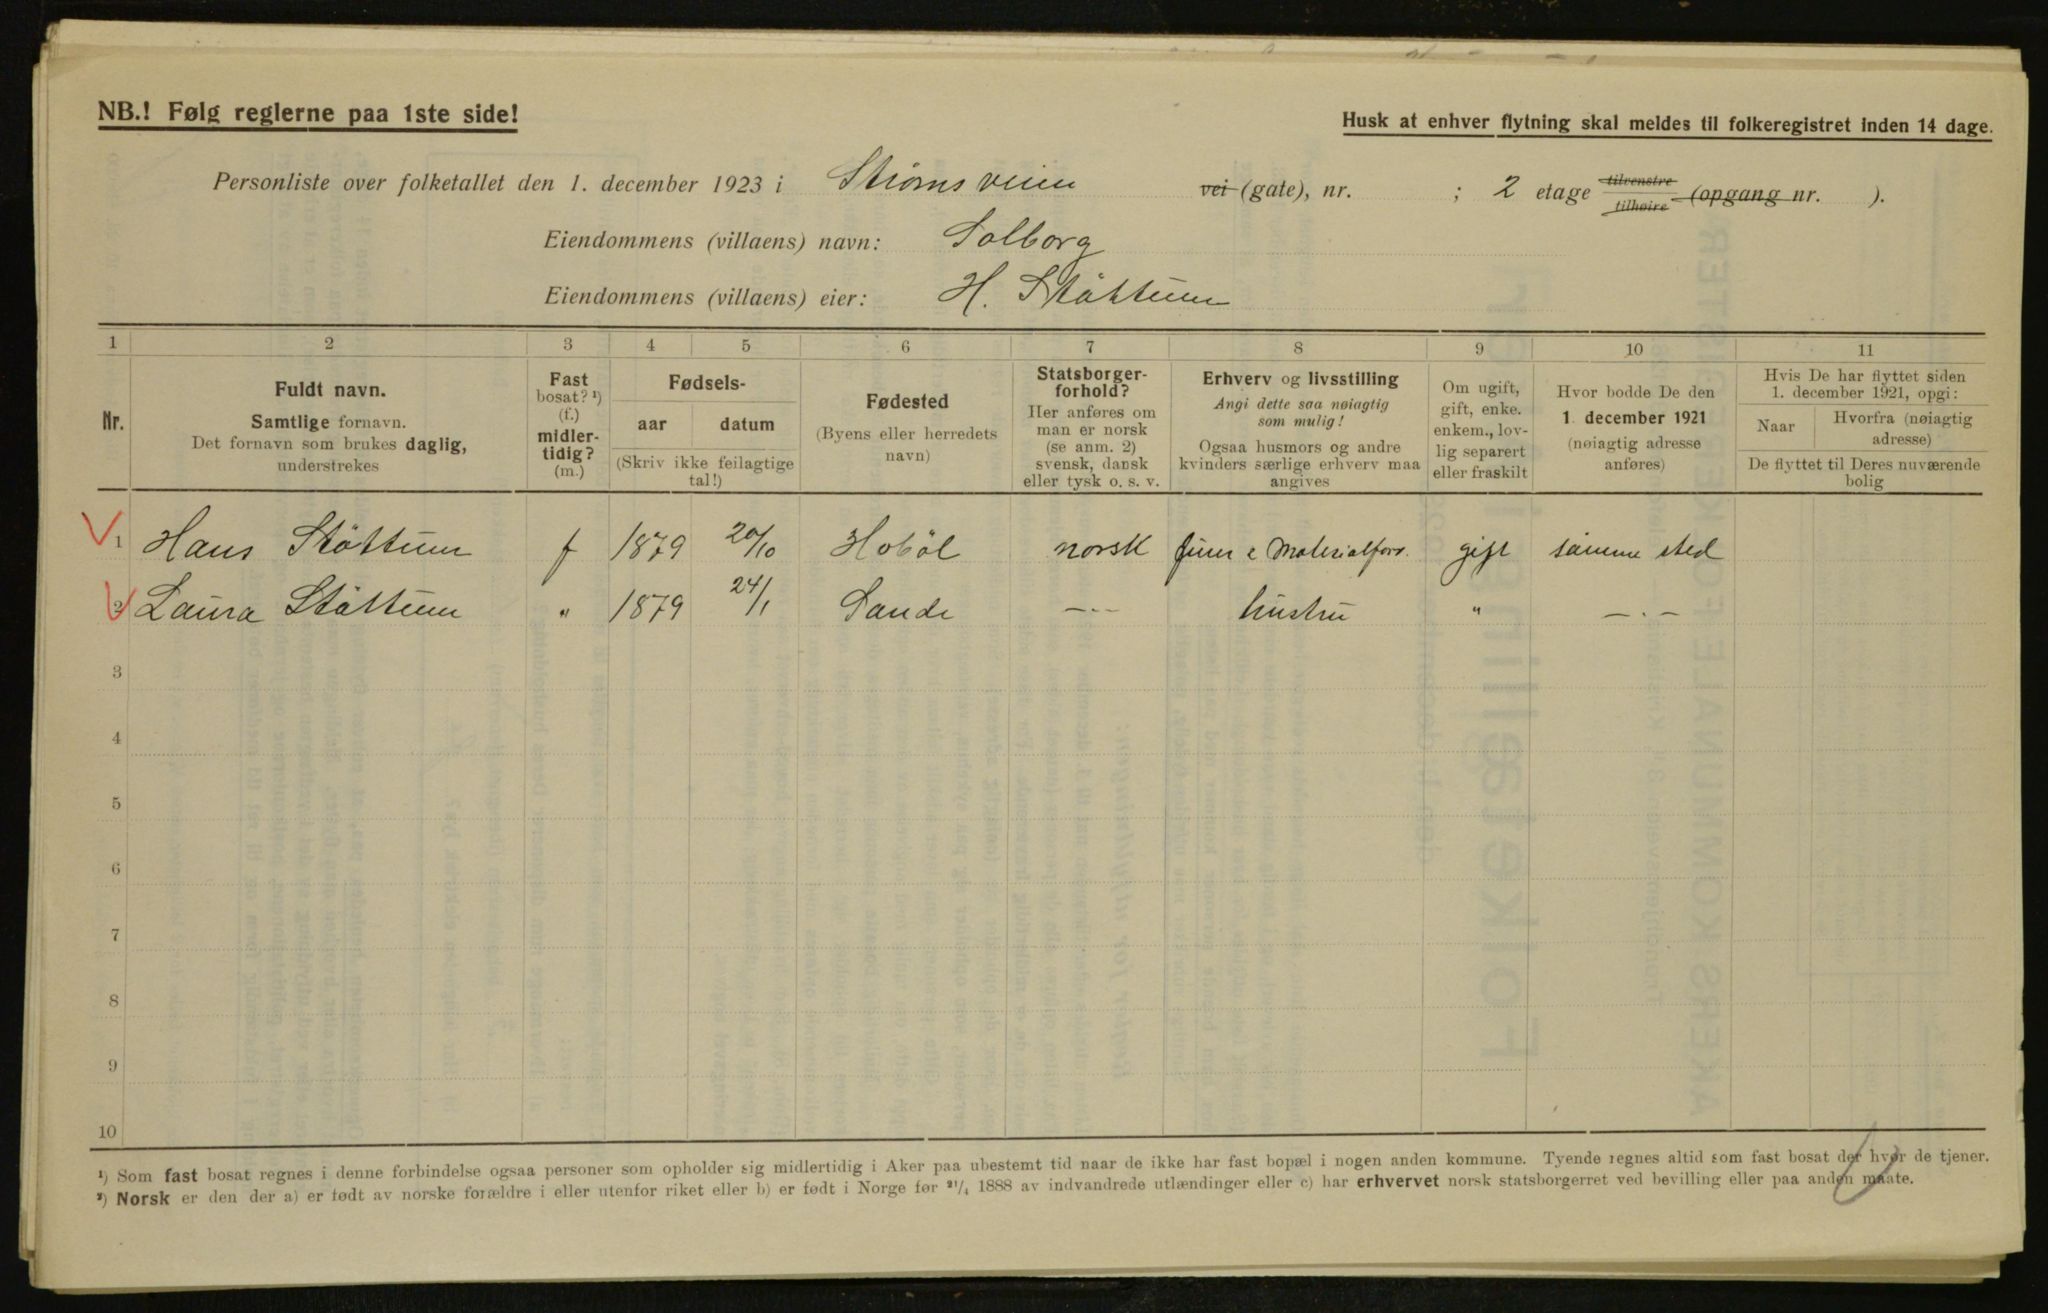 NB.! Følg reglerne paa 1ste side!
Husk at enhver flytning skal meldes til folkeregistret inden 14 dage.
Personliste over folketallet den 1. december 1923 i Strømsveien vei (gate), nr. ; 2 etage tilvenstre tilhøire (opgang nr. ).
Eiendommens (villaens) navn: Solborg
Eiendommens (villaens) eier: H. Støttum
1 2 3 4 5 6 7 8 9 10 11
Nr.
Fuldt navn.
Samtlige fornavn.
Det fornavn som brukes daglig,
understrekes
Fast
bosat? ¹)
(f.)
midler-
tidig?
(m.)
Fødsels-
aar datum
(Skriv ikke feilagtige
tal!)
Fødested
(Byens eller herredets
navn)
Statsborger-
forhold?
Her anføres om
man er norsk
(se anm. 2)
svensk, dansk
eller tysk o. s. v.
Erhverv og livsstilling
Angi dette saa nøiagtig
som mulig!
Ogsaa husmors og andre
kvinders særlige erhverv maa
angives
Om ugift,
gift, enke.
enkem., lov-
lig separert
eller fraskilt
Hvor bodde De den
1. december 1921
(nøiagtig adresse
anføres)
Hvis De har flyttet siden
1. december 1921, opgi:
Naar Hvorfra (nøiagtig
adresse)
De flyttet til Deres nuværende
bolig
1 Hans Støttum f 1879 20/10 Hobøl norsk Materialforv. gift samme sted
2 Laura Støttum " 1879 24/1 Sande —·— hustru " —·—
3
4
5
6
7
8
9
10
¹) Som fast bosat regnes i denne forbindelse ogsaa personer som opholder sig midlertidig i Aker paa ubestemt tid naar de ikke har fast bopæl i nogen anden kommune. Tyende regnes altid som fast bosat der hvor de tjener.
²) Norsk er den der a) er født av norske forældre i eller utenfor riket eller b) er født i Norge før ²¹/₄ 1888 av indvandrede utlændinger eller c) har erhvervet norsk statsborgerret ved bevilling eller paa anden maate.